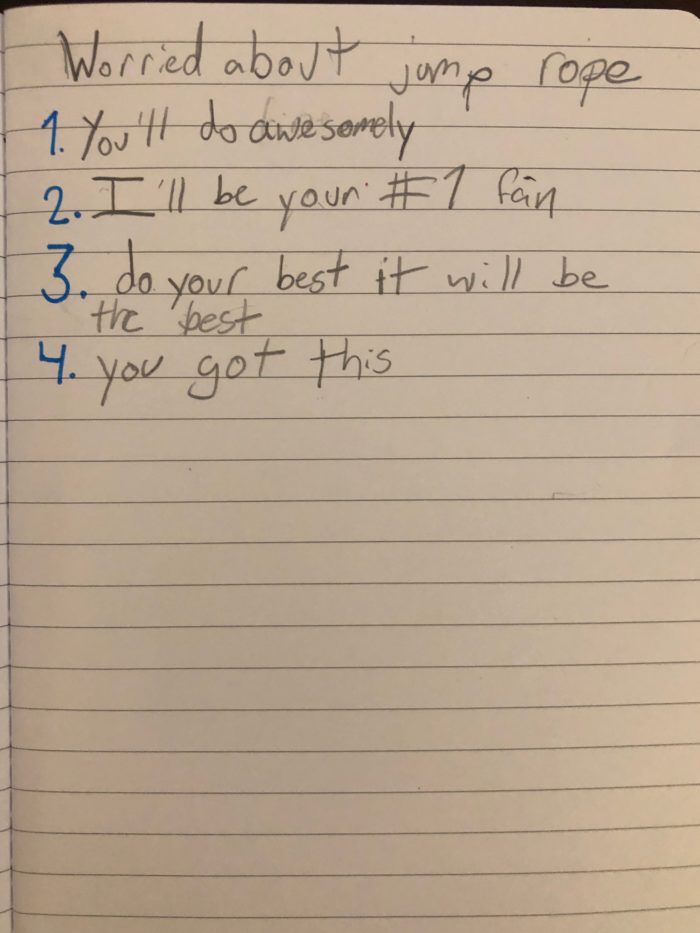 Worried about jump rope
1. You'll do awesomely
2. I'll be your #1 fan
3. do your best it will be
the best
4. you got this